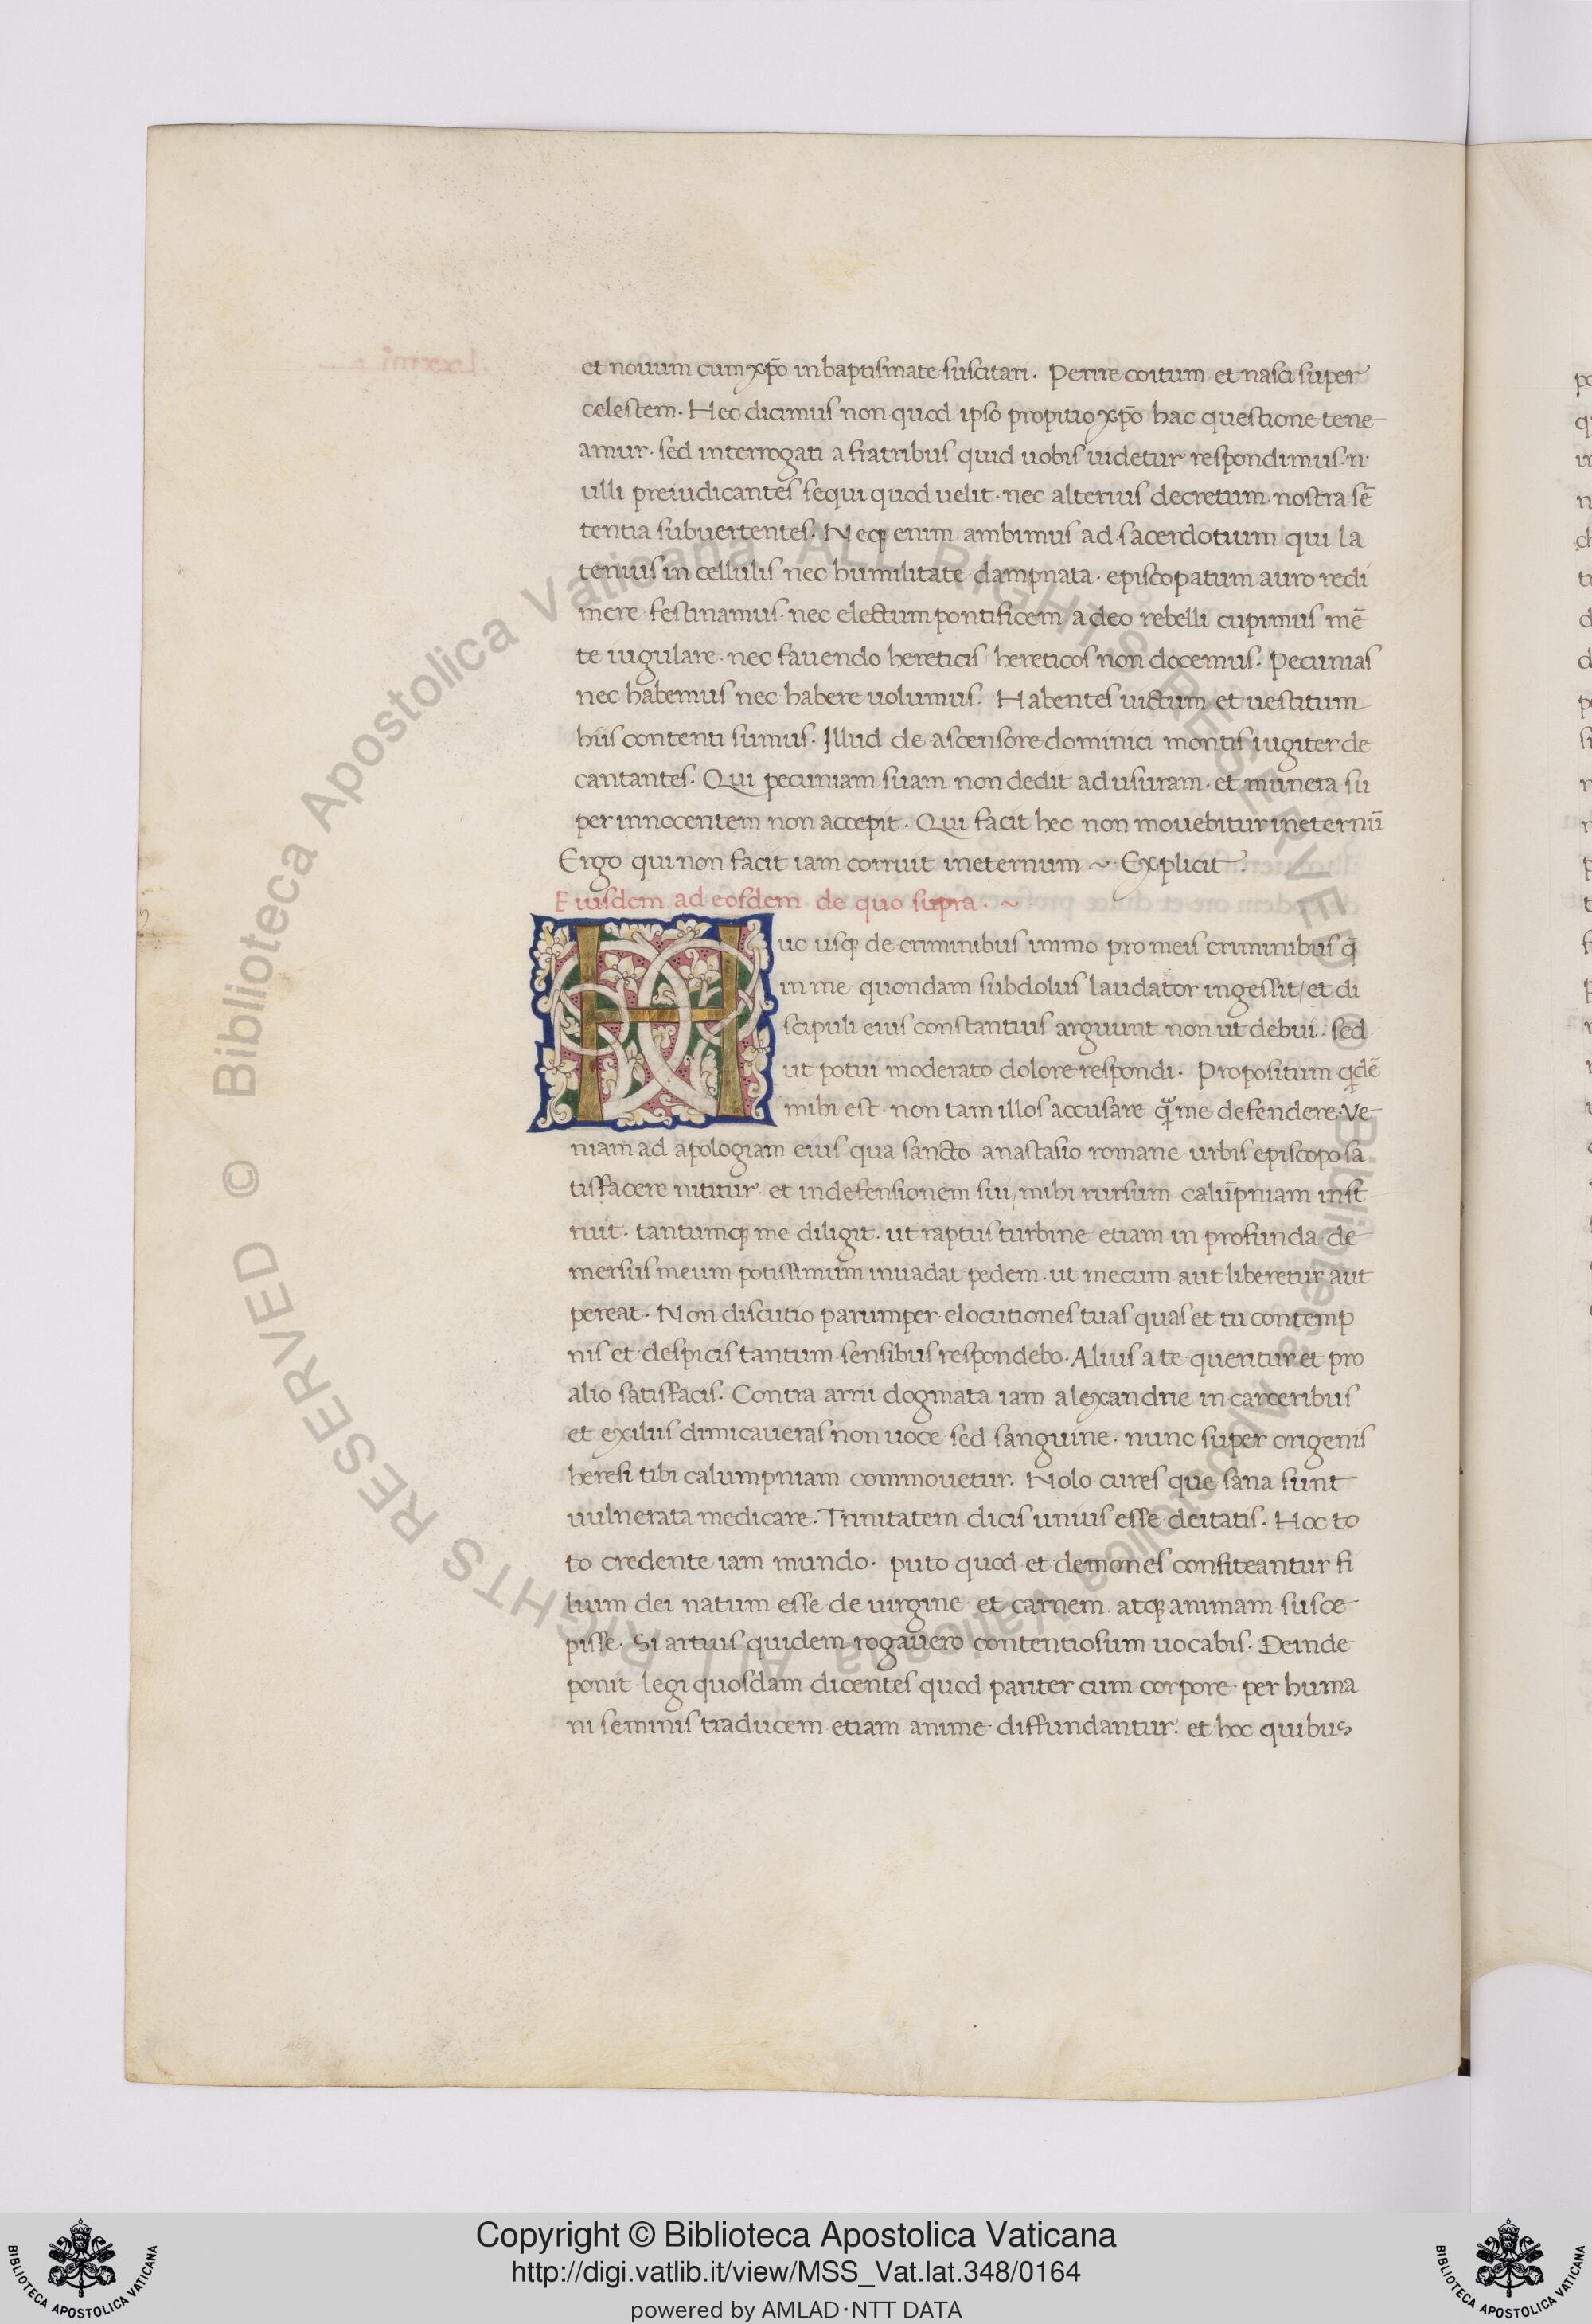 et nouum cum xp̄o in baptismate suscitari. Perire coitum et nasci super
celestem. Hec dicimus non quod ipso propitio xp̄o hac questione tene
amur. sed interrogati a fratribus quid uobis uidetur respondimus. n
ulli preiudicantes sequi quod uelit. nec alterius decretum nostra sē
tentia subuertentes. Neqꝫ enim ambimus ad sacerdotium qui la
temus in cellulis nec humilitate dampnata. episcopatum auro redi
mere festinamus. nec electum pontificem a deo rebelli cupimus mē
te iugulare. nec fauendo hereticis hereticos non docemus. Pecunias
nec habemus nec habere uolumus. Habentes uictum et uestitum
hiis contenti sumus. Illud de ascensore dominici montis iugiter de
cantantes. Qui pecuniam suam non dedit ad usuram. et munera su
per innocentem non accepit. Qui facit hec non mouebitur in eternū
Ergo qui non facit iam corruit in eternum ~ Explicit.
Eiusdem ad eosdem de quo supra. ~
Huc usqꝫ de criminibus immo pro meis criminibus q̄
in me quondam subdolus laudator ingessit / et di
scipuli eius constantius arguunt non ut debui. sed
ut potui moderato dolore respondi. Propositum qͥdē
mihi est. non tam illos accusare qͣ̄ me defendere. Ve
niam ad apologiam eius qua sancto anastasio romane urbis episcopo sa
tisfacere nititur et in defensionem sui / mihi rursum calūpniam inst
ruit. tantumqꝫ me diligit. ut raptus turbine etiam in profunda de
mersus meum potissimum inuadat pedem. ut mecum aut liberetur aut
pereat. Non discutio parumper elocutiones tuas quas et tu contemp
nis et despicis tantum sensibus respondebo. Alius a te queritur et pro
alio satisfacis. Contra arrii dogmata iam alexandrie in carceribus
et exilus dimicaueras non uoce sed sanguine. nunc super origenis
heresi tibi calumpniam commouetur. Nolo cures que sana sunt
uulnerata medicare. Trinitatem dicis unius esse deitatis. Hoc to
to credente iam mundo. puto quod et demones confiteantur fi
lium dei natum esse de uirgine et carnem. atqꝫ animam susce
pisse. Si artius quidem rogauero contentiosum uocabis. Deinde
ponit legi quosdam dicentes quod pariter cum corpore per huma
ni seminis traducem etiam anime diffundantur. et hoc quibus
Copyright © Biblioteca Apostolica Vaticana
http://digi.vatlib.it/view/MSS_Vat.lat.348/0164
powered by AMLAD·NTT DATA
BIBLIOTECA APOSTOLICA VATICANA
BIBLIOTECA APOSTOLICA VATICANA
© Biblioteca Apostolica Vaticana ALL RIGHTS RESERVED © Biblioteca Apostolica Vaticana ALL RIGHTS RESERVED